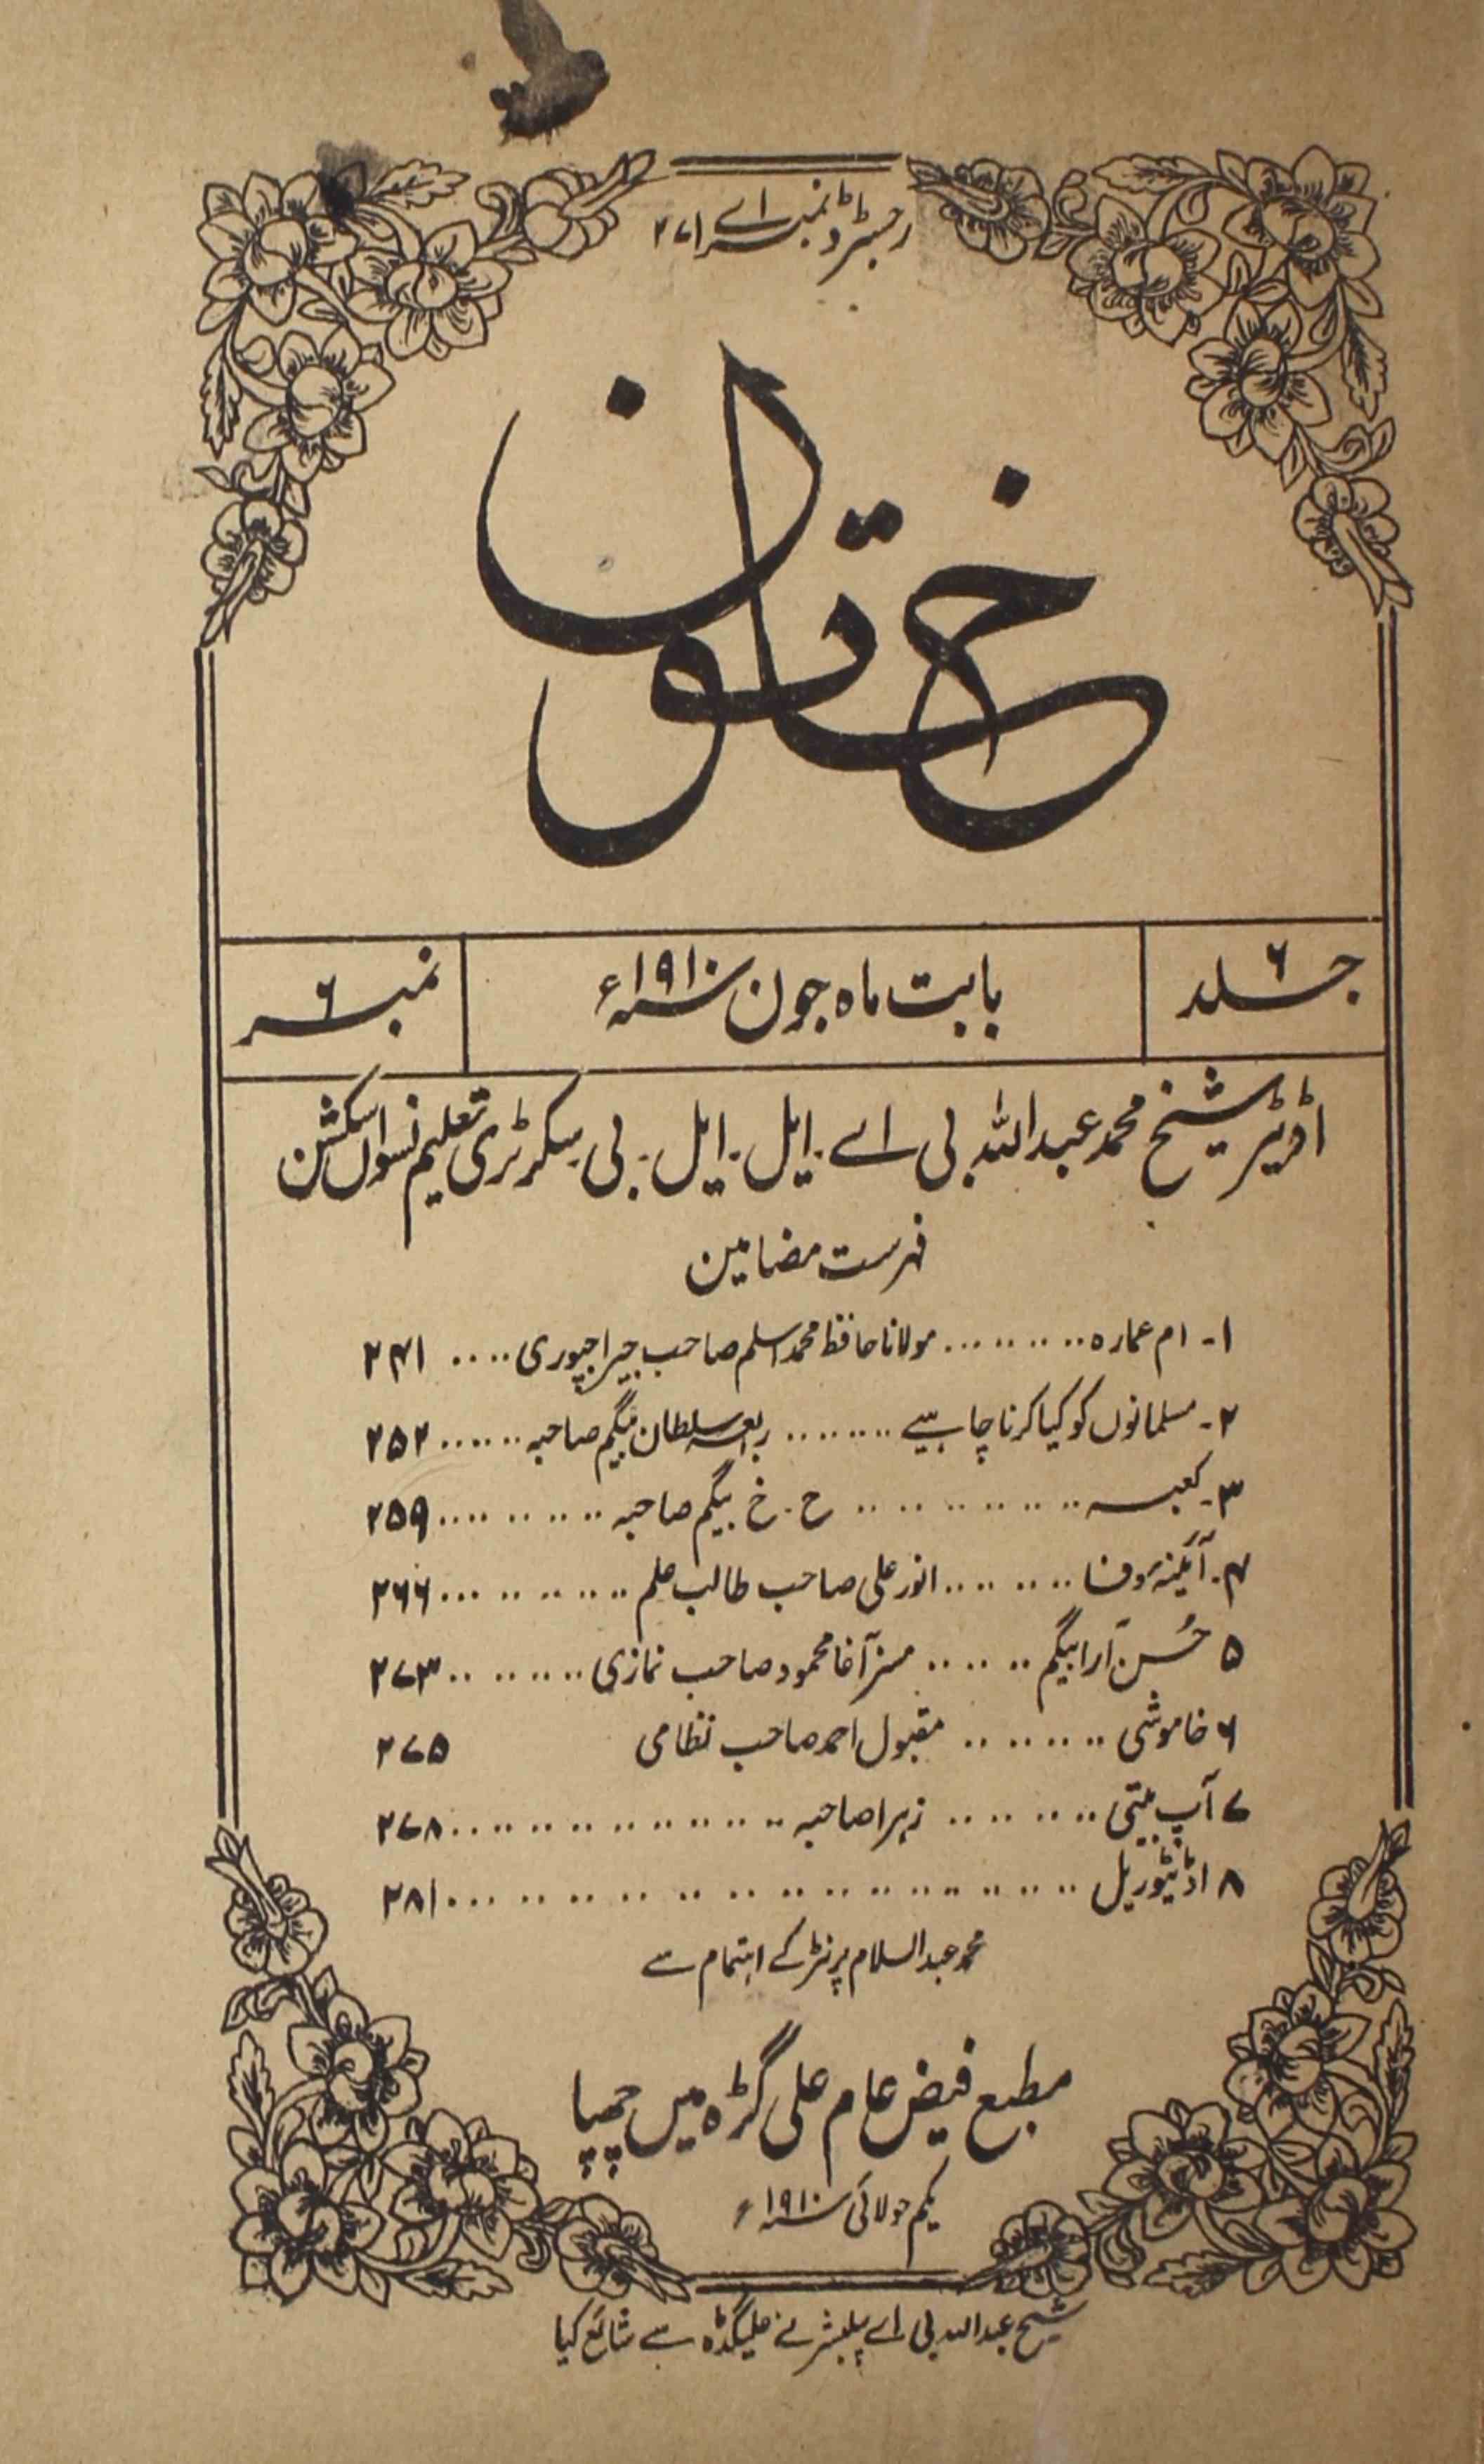 رجسٹرڈ نمبر اے ۲۷۱
خاتون
جلد ۶
بابت ماہ جون سنہ ۱۹۱۰ء
نمبر ۶
اڈیٹر شیخ محمد عبداللہ بی اے. ایل. ایل. بی سکرٹری تعلیم نسواں سکشن
فہرست مضامین
۱- ام عمارہ .......... مولانا حافظ محمد اسلم صاحب جیراجپوری .... ۲۴۱
۲- مسلمانوں کو کیا کرنا چاہیے ........ رابعہ سلطان بیگم صاحبہ ...... ۲۵۲
۳- کعبہ .......... ح. خ بیگم صاحبہ .......... ۲۵۹
۴- آئینہ وفا ........ انور علی صاحب طالب علم .......... ۲۶۶
۵ حُسن آرا بیگم ...... مسز آغا محمود صاحب نمازی ........ ۲۷۳
۶ خاموشی ........ مقبول احمد صاحب نظامی ۲۷۵
۷ آپ بیتی ........ زہرا صاحبہ .................. ۲۷۸
۸ اڈیٹوریل .............................. ۲۸۱
محمد عبدالسلام پرنٹر کے اہتمام سے
مطبع فیض عام علی گڑہ میں چھپا
یکم جولائی سنہ ۱۹۱۰ء
شیخ عبداللہ بی اے پبلشر نے علیگڈہ سے شائع کیا